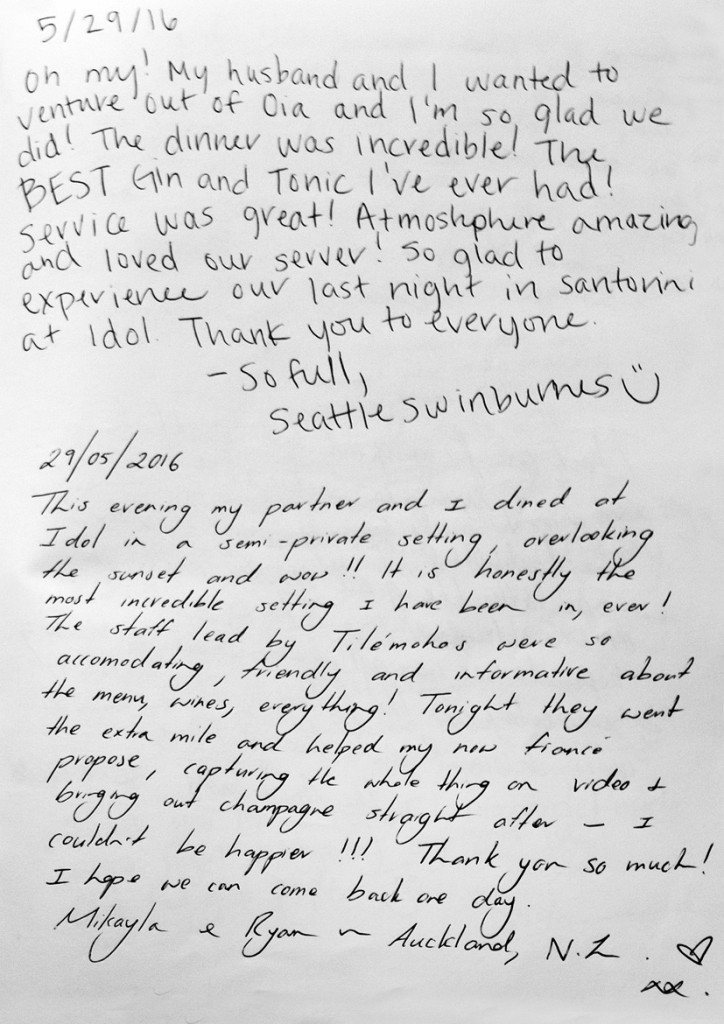 5/29/16
Oh my! My husband and I wanted to
venture out of Oia and I'm so glad we
did! The dinner was incredible! The
BEST Gin and Tonic I've ever had!
Service was great! Atmoshphere amazing
and loved our server! So glad to
experience our last night in santorini
at Idol. Thank you to everyone.
- So full,
Seattle Swinburnes
29/05/2016
This evening my partner and I dined at
Idol in a semi-private setting, overlooking
the sunset and wow!! It is honestly the
most incredible setting I have been in, ever!
The staff lead by Tilémohos were so
accomodating, friendly and informative about
the menu, wines, everything! Tonight they went
the extra mile and helped my new fiancé
propose, capturing the whole thing on video +
bringing out champagne straight after – I
couldn't be happier !!! Thank you so much!
I hope we can come back one day.
Mikayla & Ryan ~ Auckland, N.Z.
xx.